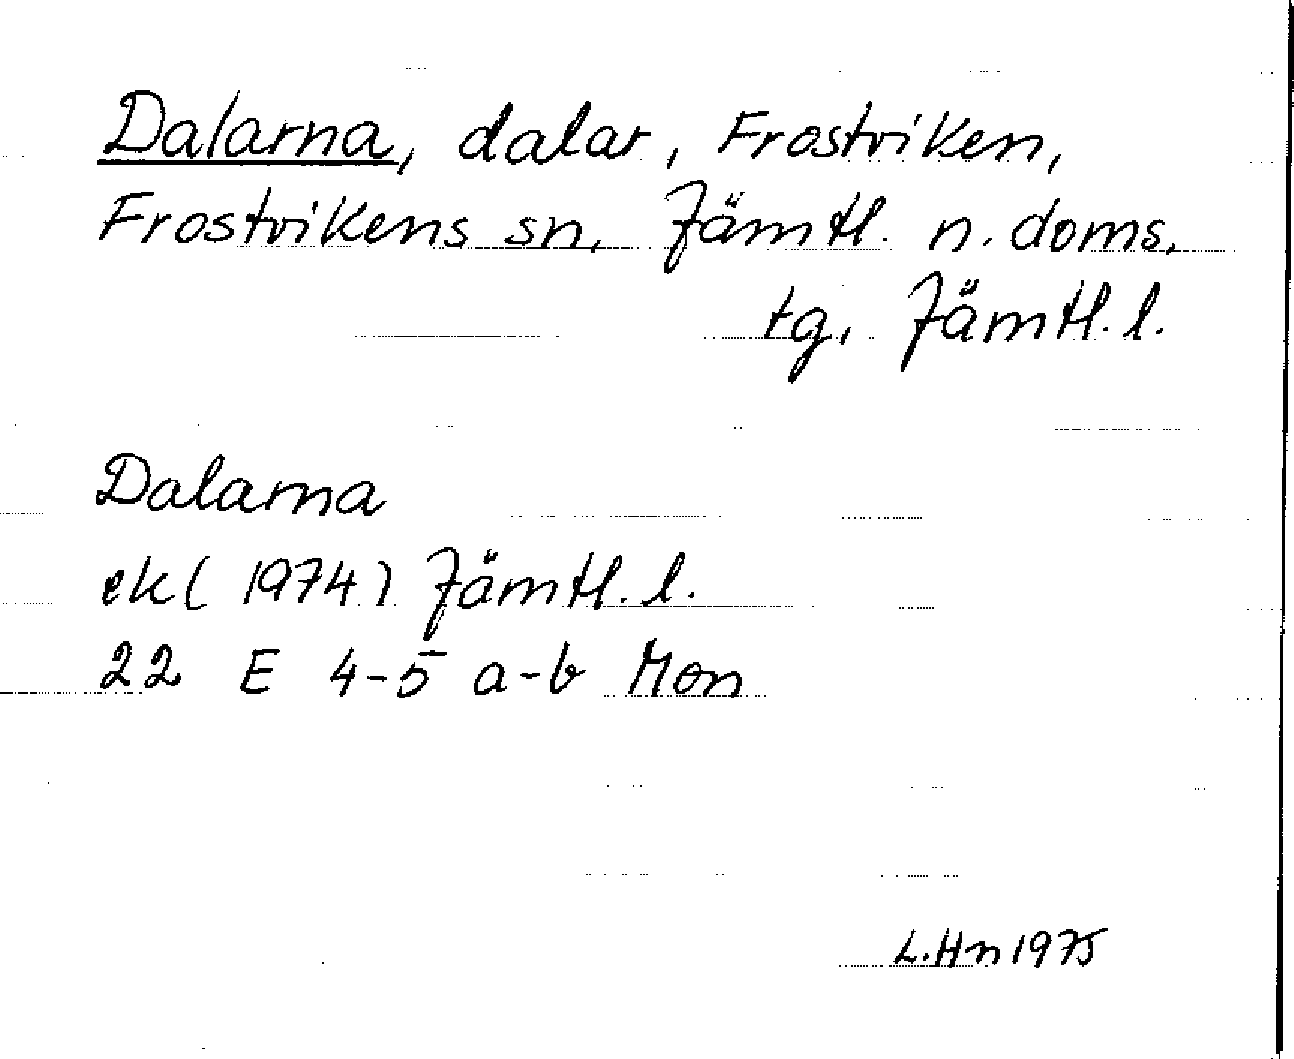 Dalarna, dalar, Frostviken,
Frostvikens sn, Jämtl. n. doms.
tg, Jämtl. l.
Dalarna
ek( 1974) Jämtl. l.
22 E 4-5 a-b Mon
L.Hn 1975